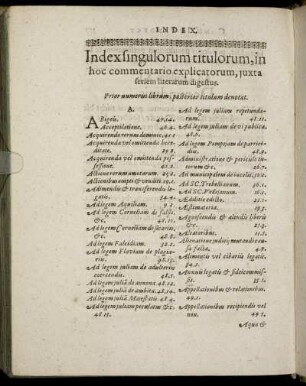 INDEX.
Index singulorum titulorum, in
hoc commentario explicatorum, juxta
seriem literarum digestus.
Prior numerus librum, posterior titulum denotat.
A.
Abigeis. 47.14.
Acceptilatione. 46.4.
Acquirendo rerum dominio. 41.1.
Acquirenda vel omittenda here-
ditate. 29.2.
Acquirenda vel omittenda pos-
sessione. 41.2.
Actione rerum amotarum. 25.2.
Actionibus empti & venditi. 19.1.
Adimendis & transferendis le-
gatis. 34.4.
Ad legem Aquiliam. 9.2.
Ad legem Corneliam de falsis
&c. 48.10.
Ad legem Corneliam de sicariis,
&c. 48.8.
Ad legem Falcidiam. 35.2.
Ad legem Flaviam de plagia-
riis. 48.15.
Ad legem juliam de adulteriis
coercendis. 48.5.
Ad legem juliã de annona. 48.12.
Ad legem juliã de ambitu. 48.14.
Ad legem juliã Majestatis 48.4.
Ad legem juliam peculatus &c.
48.13.
Ad legem juliam repetunda-
rum. 48.11.
Ad legem juliam de vi publica.
48.6.
Ad legem Pompejam de parrici-
diis. 48.9.
Administratione & periculo
torum &c.
Ad municipalem & de incolis. 50.1.
Ad SC. Trebellianum. 36.1.
Ad SC. Vellejanum. 16.1.
Aedilitio edicto. 21.1.
Aestimatoria. 19.3.
Agnoscendis & alendis liberis
&c. 25.3.
Aleatoribus. 11.5.
Alienatione judicij mutandi cau-
sa facta. 4.7.
Alimentis vel cibariis legatis.
34.1.
Annuis legatis & fideicommis-
sis. 33.1.
Appellationibus & relationib.
49.1.
Appellationibus recipiendis vel
non. 49.5.
Aqua &